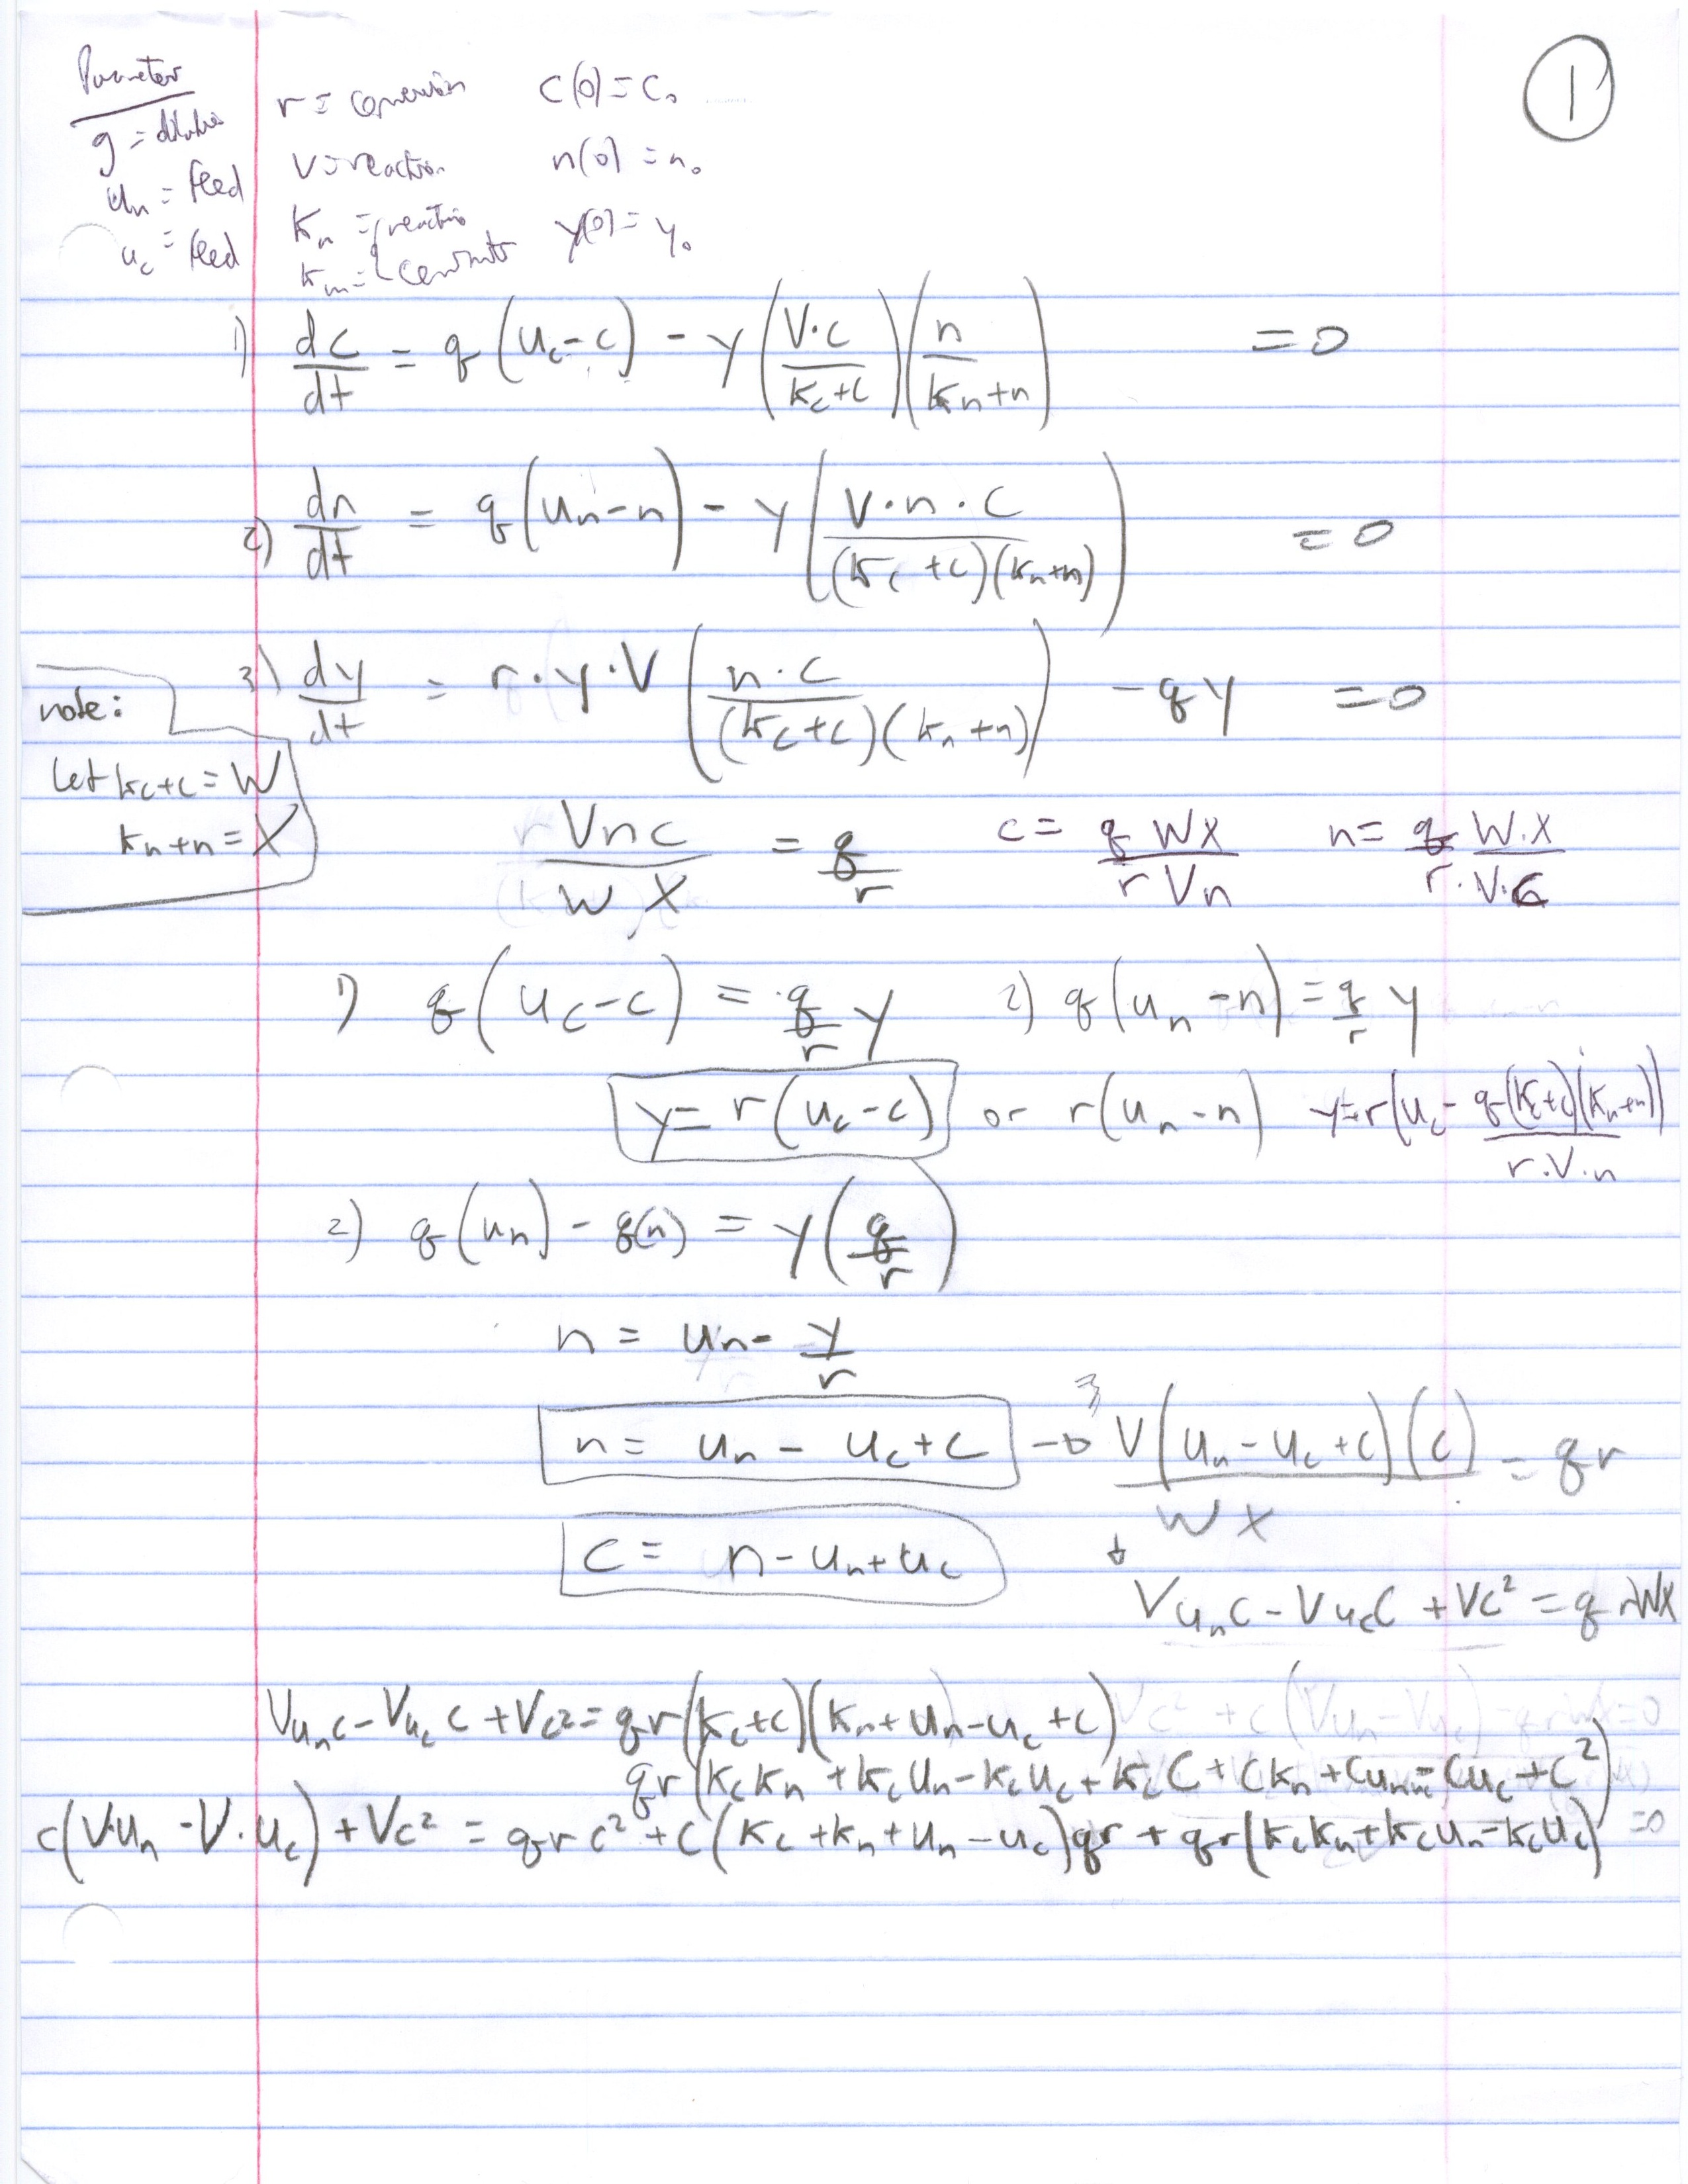 Parameter
g = dilution
u_n = feed
u_c = feed
r = conversion
V = reaction
K_n = { reaction
K_m = { constants
c(0) = c_0
n(0) = n_0
y(0) = y_0
1
1) dc/dt = q(u_c - c) - y(V·c/(K_c+c))(n/(K_n+n)) = 0
2) dn/dt = q(u_n - n) - y(V·n·c/((K_c+c)(K_n+n))) = 0
3) dy/dt = r·y·V(n·c/((K_c+c)(K_n+n))) - qy = 0
note:
Let K_c+c = W
K_n+n = X
Vnc/(W X) = q/r   c = q WX/(r Vn)   n = q W·X/(r·V·c)
1) q(u_c - c) = q/r y   2) q(u_n - n) = q/r y
y = r(u_c - c) or r(u_n - n)   y = r(u_c - q(K_c+c)(K_n+n)/(r·V·n))
2) q(u_n) - q(n) = y(q/r)
n = u_n - y/r
n = u_n - u_c + c → 3 V(u_n - u_c + c)(c)/(W X) = qr
c = n - u_n + u_c ↓
Vu_nc - Vu_cc + Vc² = qrWX
Vu_nc - Vu_cc + Vc² = qr(K_c+c)(K_n+u_n-u_c+c)
qr(K_cK_n + K_cu_n - K_cu_c + K_cc + cK_n + cu_n - cu_c + c²)
c(V·u_n - V·u_c) + Vc² = qrc² + c(K_c + K_n + u_n - u_c)qr + qr(K_cK_n + K_cu_n - K_cu_c) = 0